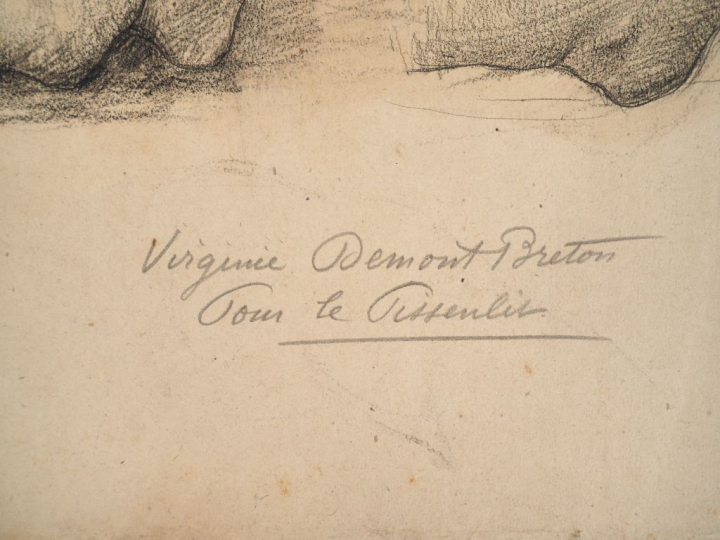 Virginie Demont-Breton
Pour le Pissenlit